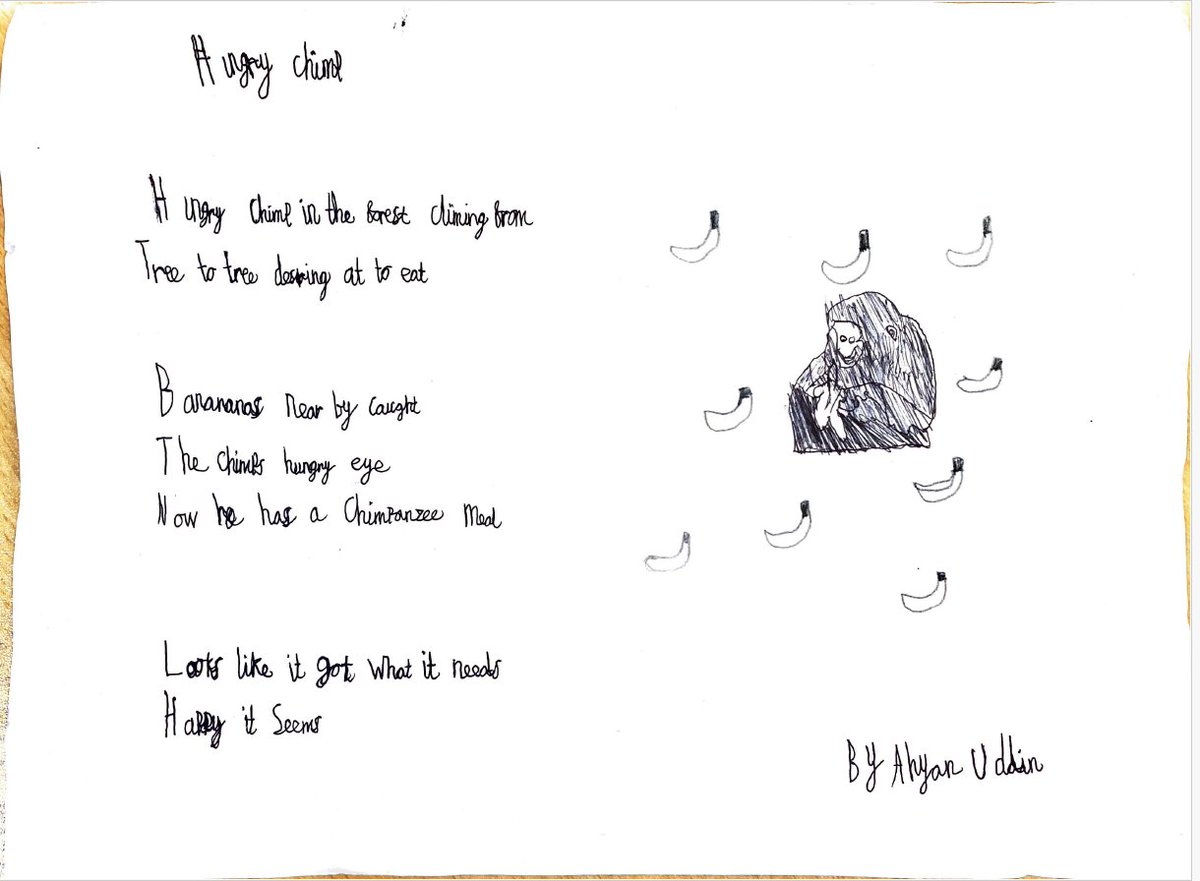 Hungry chimp
Hungry Chimp in the forest climing from
Tree to tree desiring at to eat
Barananas Near by Caught
The chimps hungry eye
Now he has a Chimpanzee Meal
Looks like it got what it needs
Happy it Seems
BY Ahyan Uddin